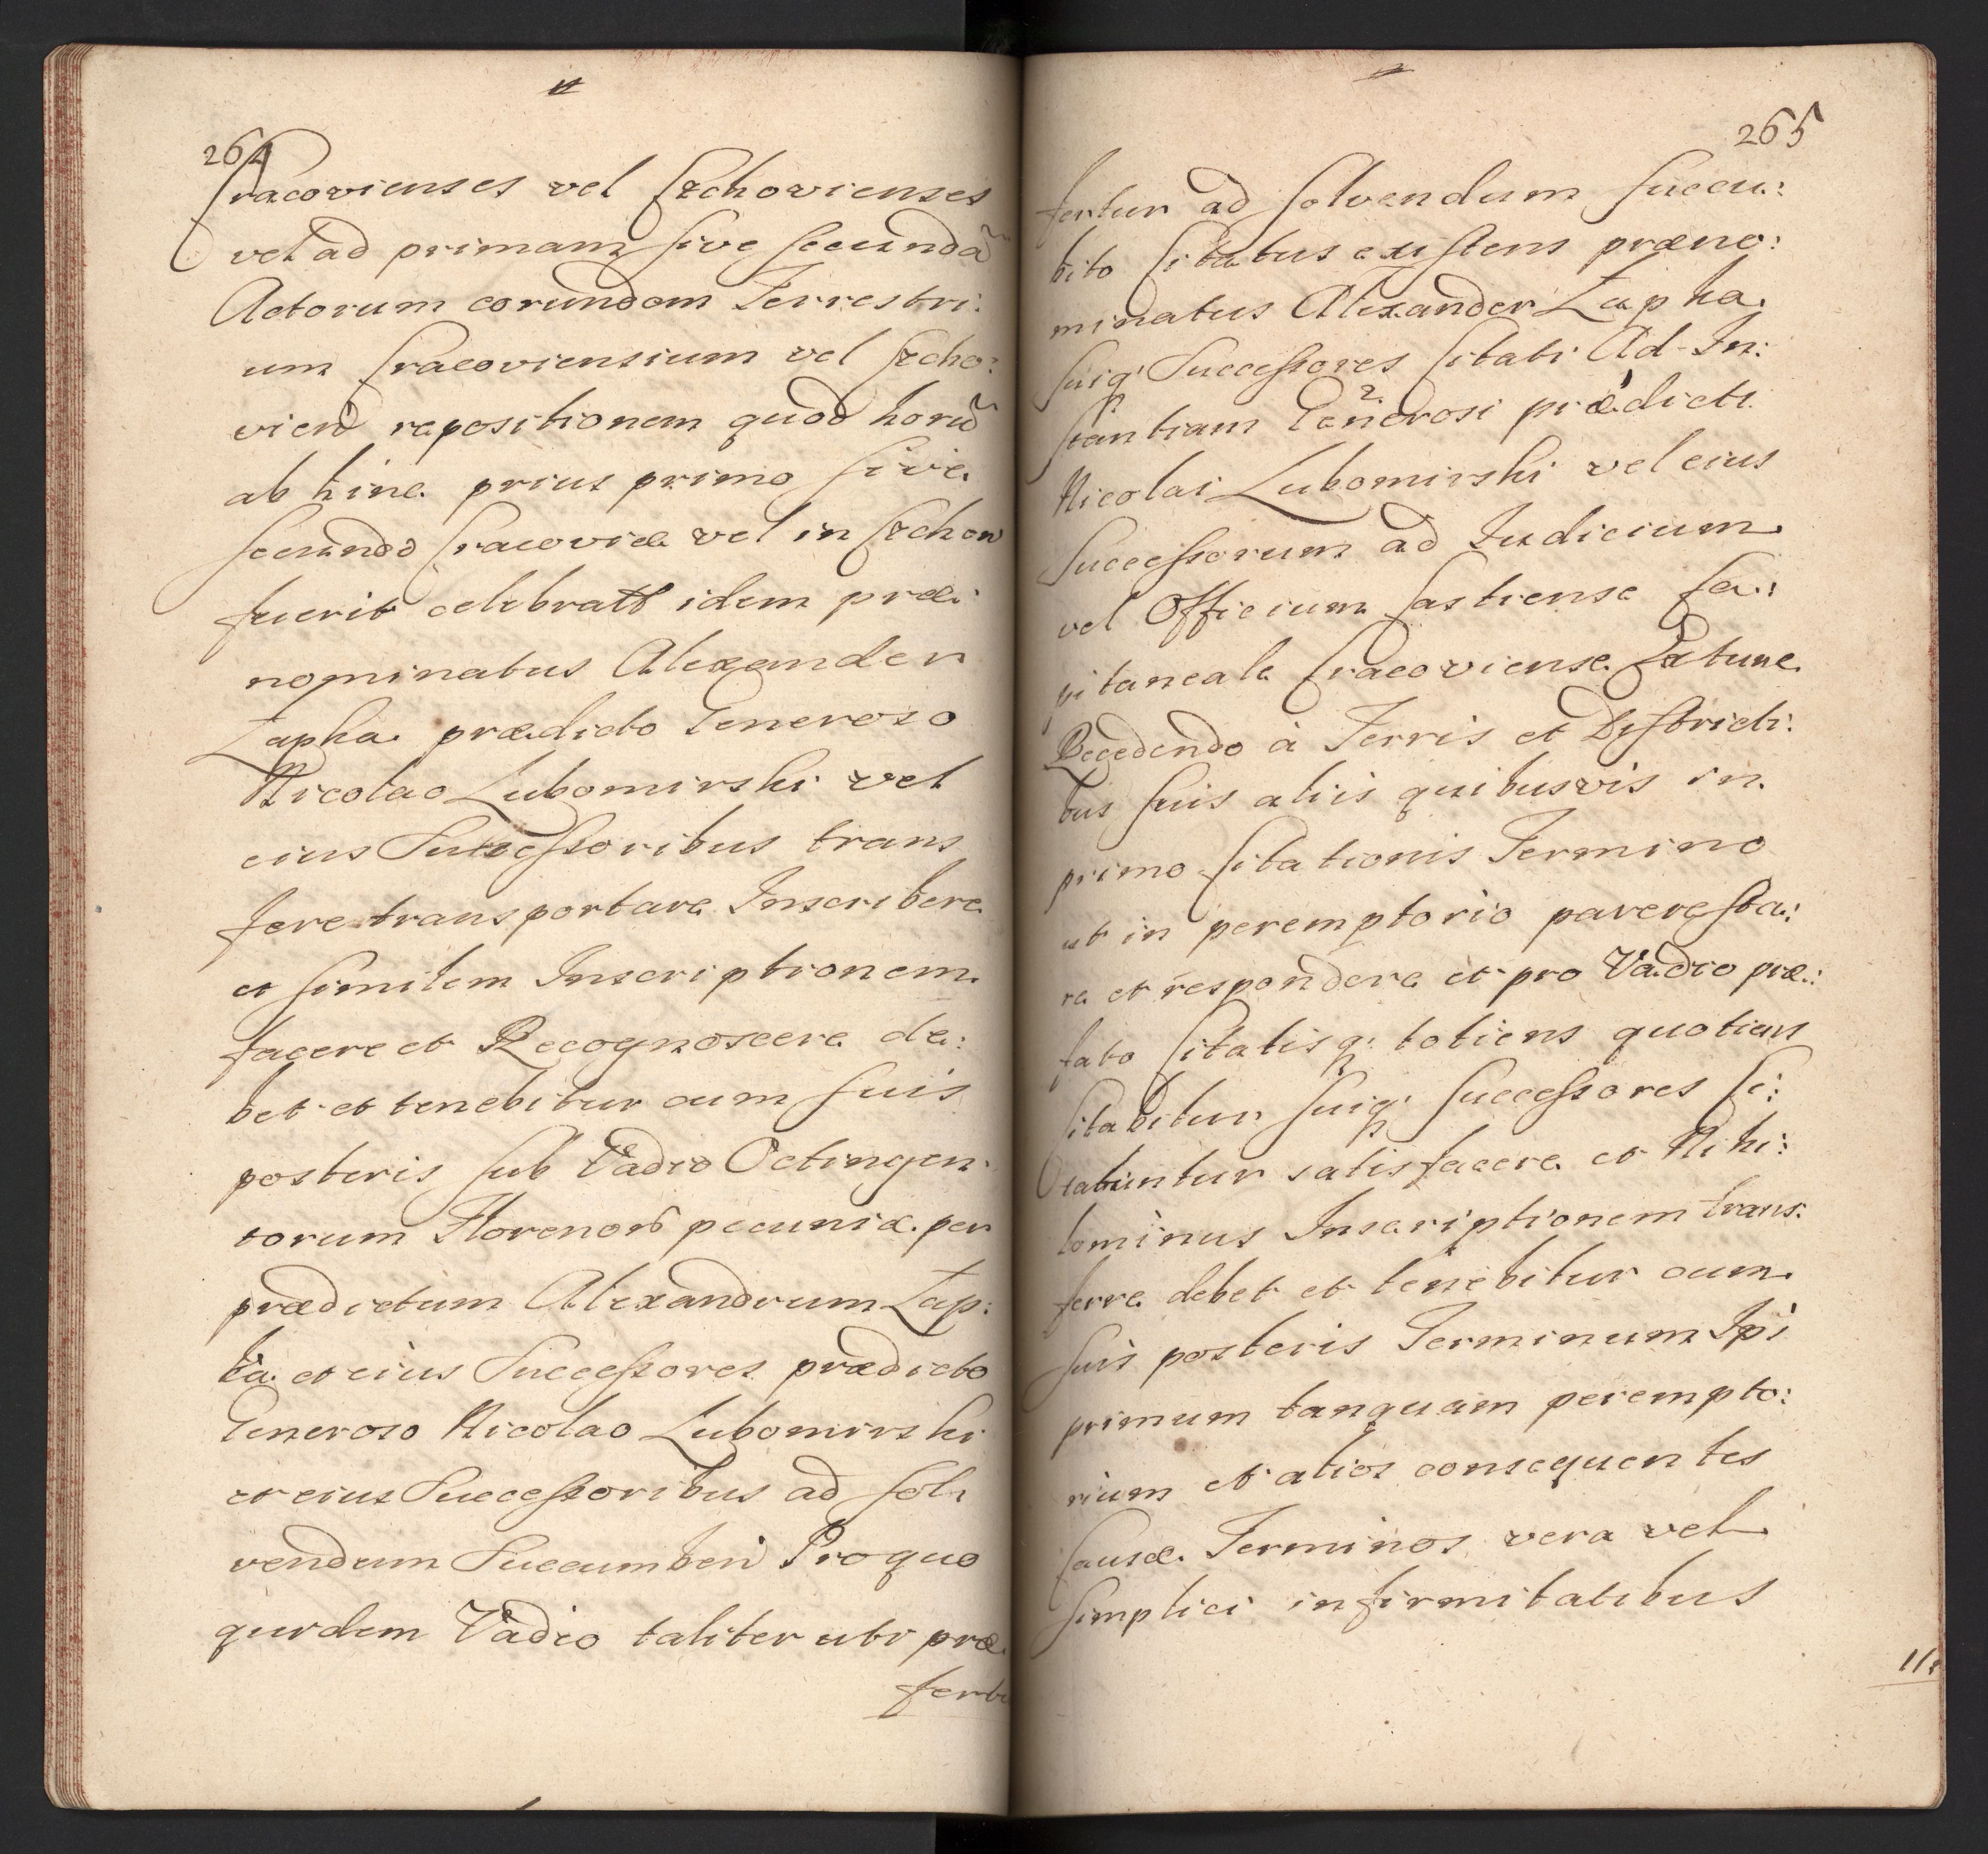 264
Cracovienses vel Czchovienses
vel ad primam sive secundã
Actorum eorundem Terrestri:
um Cracoviensium vel Czcho:
vien repositionem quod horũ
ab hinc prius primo sive
secundo Cracoviæ vel in Czchow
fuerit celebratt idem præ:
nominatus Alexander
Zapha prædicto Generoso
Nicolao Lubomirski vel
eius Successoribus trans
fere transportare Inscribere
et similem Inscriptionem
facere et Recognoscere de:
bet et tenebitur cum suis
posteris sub Vadio Octingen:
torum Floreno pecuniæ per
prædictum Alexandrum Zap:
ha et eius Successores prædicto
Generoso Nicolao Lubomirski
et eius Successoribus ad sol:
vendum Succumben Pro quo
quidem Vadio taliter uti præ
fertu
265
fertur ad solvendum succu:
bito Citatus existens præno:
minatus Alexander Zapha
suiq; Successores Citati Ad In:
stantiam Generosi prædicti
Nicolai Lubomirski vel eius
Successorum ad Iudicium
vel Officium Castrense Ca:
pitaneale Cracoviense Extunc
Recedendo à Terris et Districti:
bus suis aliis quibusvis in
primo Citationis Termino
ut in peremptorio parere sta:
re et respondere et pro Vadio præ:
fato Citatisq; totiens quotiens
Citabitur suiq; Successores Ci:
tabuntur satisfacere et Nihi:
lominus Inscriptionem trans:
ferre debet et tenebitur cum
suis posteris Terminum Ipi
primum tanquam perempto:
rium et alios consequentes
Causæ Terminos vera vel
simplici infirmitatibus